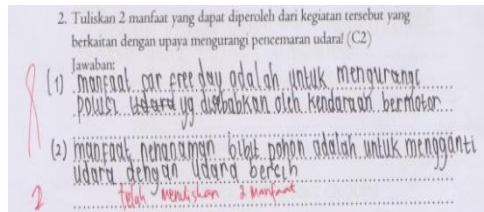 2. Tuliskan 2 manfaat yang dapat diperoleh dari kegiatan tersebut yang
berkaitan dengan upaya mengurangi pencemaran udara! (C2)
Jawaban:
(1) manfaat car free day adalah untuk mengurangi
polusi udara yg disebabkan oleh kendaraan bermotor
(2) manfaat penanaman bibit pohon adalah untuk mengganti
udara dengan udara bersih
2 telah menuliskan 2 manfaat